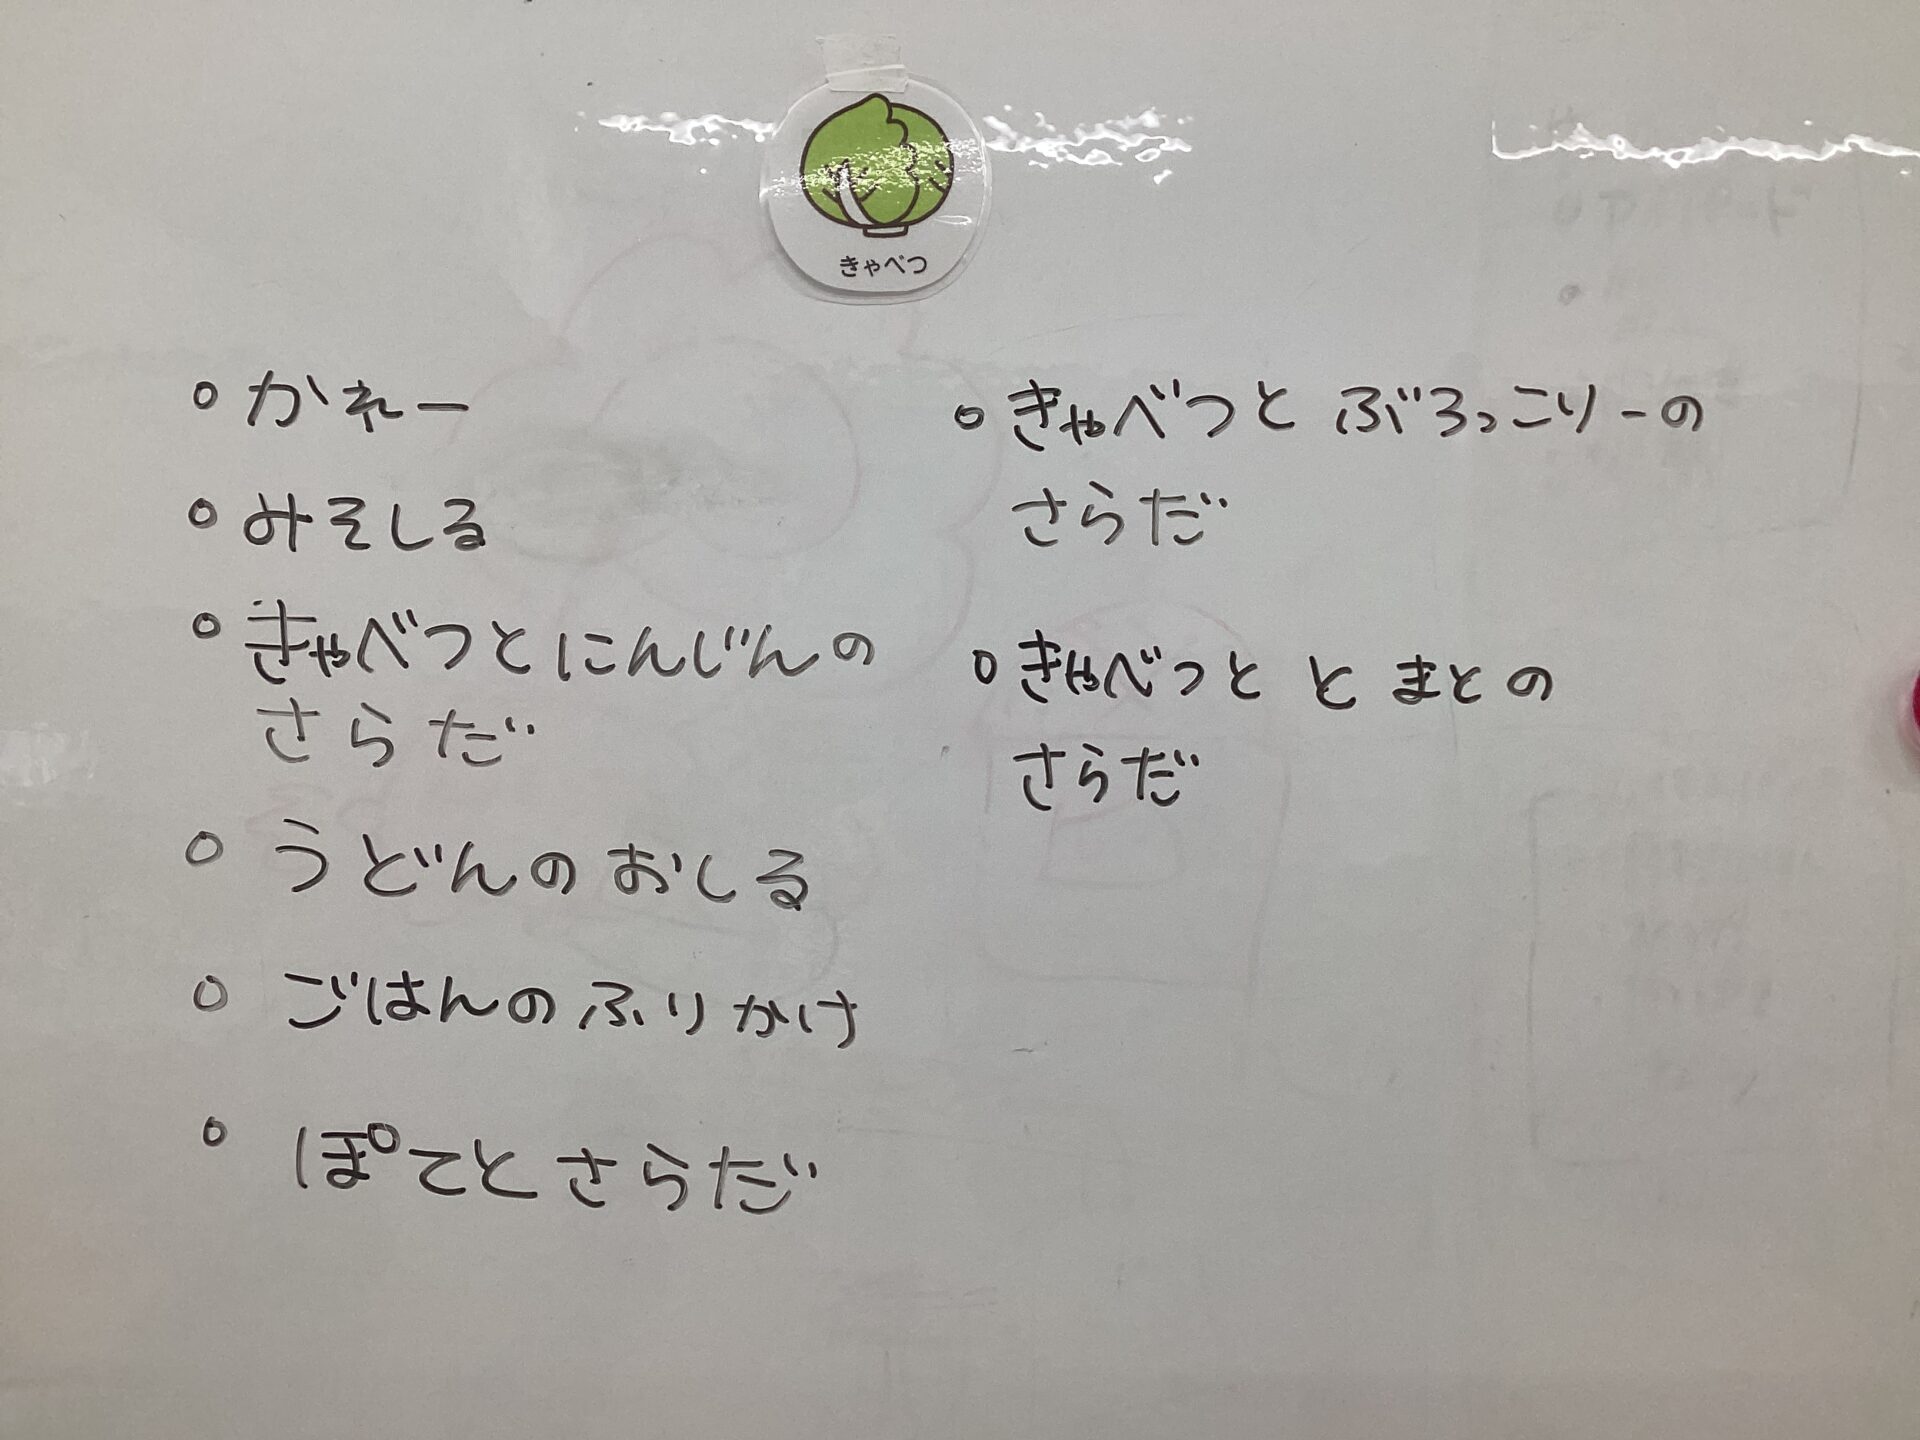 きゃべつ
○かれー
○みそしる
○きゃべつとにんじんの
さらだ
○うどんのおしる
○ごはんのふりかけ
○ぽてとさらだ
○きゃべつと ぶろっこりーの
さらだ
○きゃべつと とまとの
さらだ